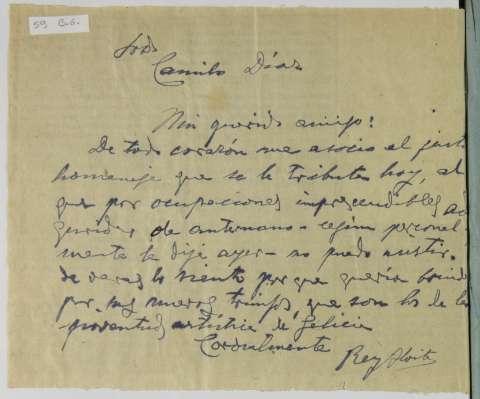 59 C.G.
Sr. D.
Camilo Díaz
Mi querido amigo:
De todo corazón me asocio al justo
homenaje que se le tributa hoy, al
que por ocupaciones imprescindibles ad
quiridas de antemano - según personal
mente le dije ayer - no puedo asistir.
de veras lo siento porque quería brindar
por sus nuevos triunfos, que son los de la
juventud artística de Galicia
Cordialmente
Rey